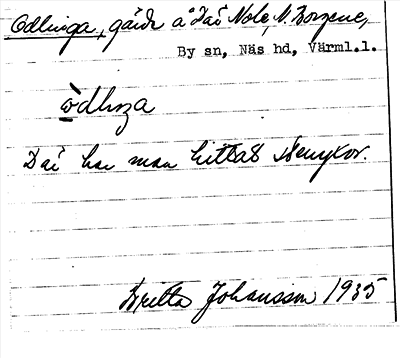 Odlinga, gärde å Där Nole, N. Borgene,
By sn, Näs hd, Värml.l.
òdlıŋa
Där har man hittat stenyxor.
Britta Johansson 1935